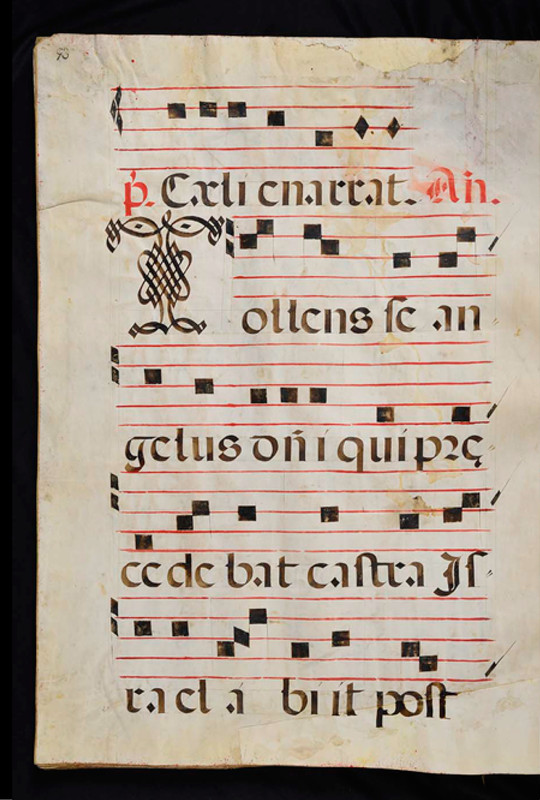 p̃. Cæli enarrat. Añ.
Tollens se an
gelus dñi qui prę
cedebat castra Is
rael abiit post